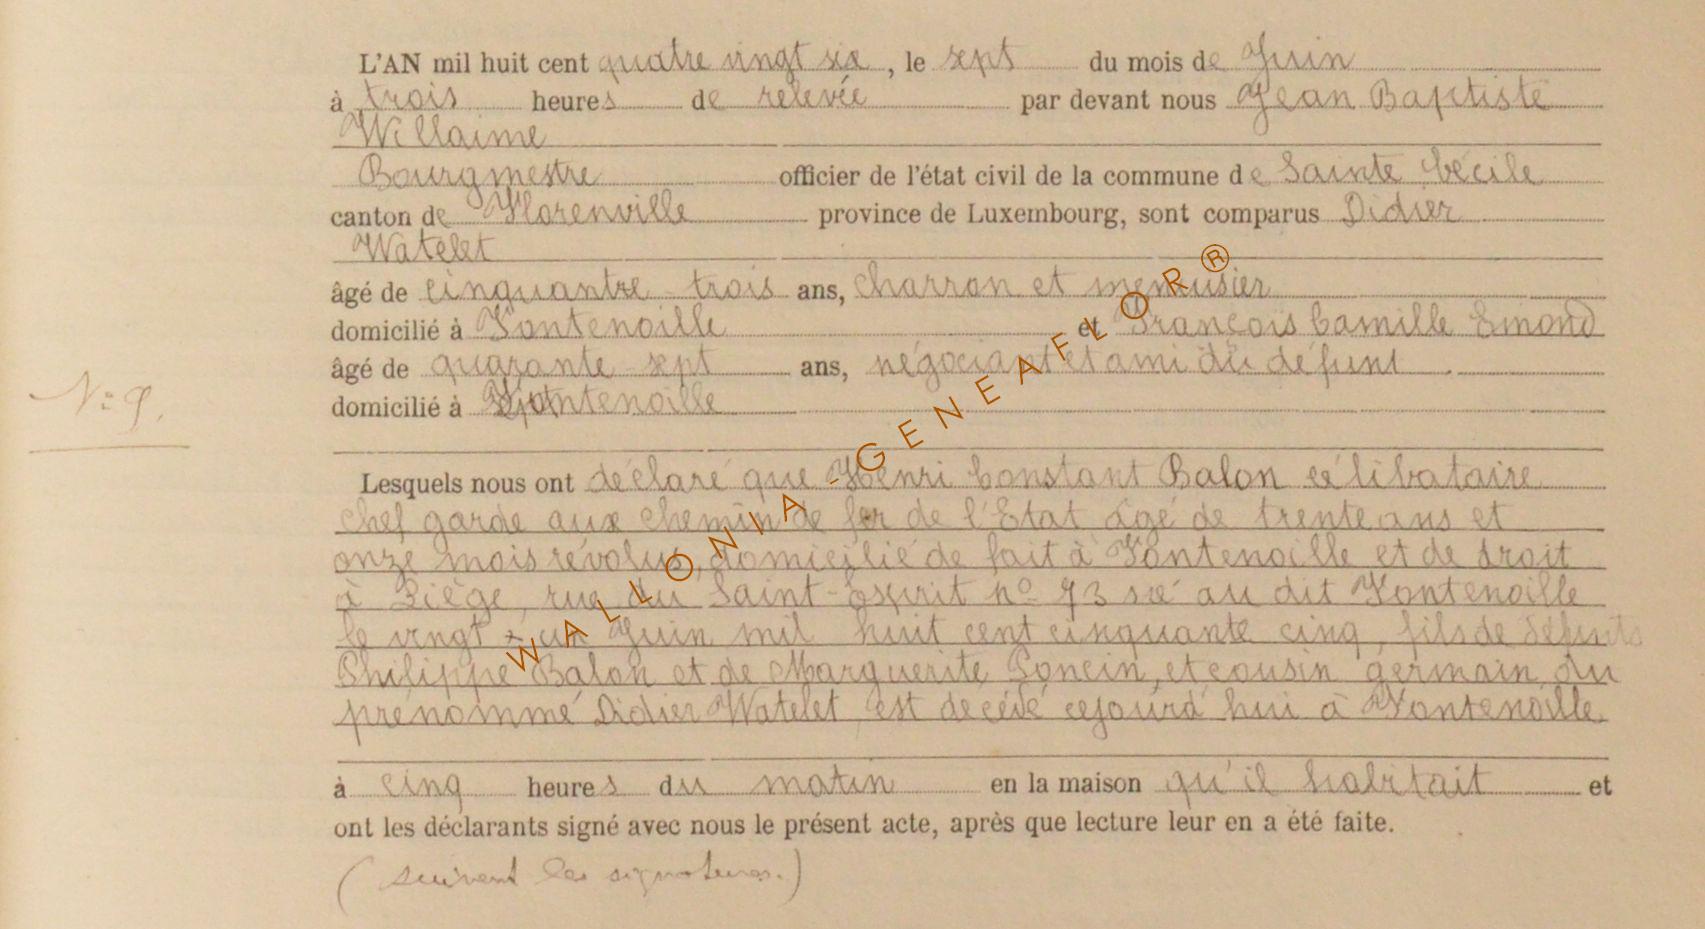 L'AN mil huit cent quatre vingt six, le sept du mois de Juin
à trois heures de relevée par devant nous Jean Baptiste
Willaime
Bourgmestre officier de l'état civil de la commune de Sainte Cécile
canton de Florenville province de Luxembourg, sont comparus Didier
Watelet
âgé de cinquantre-trois ans, charron et menuisier
domicilié à Fontenoille et François Camille Emond
âgé de quarante-sept ans, négociant et ami du défunt
domicilié à Fontenoille
N° 9.
Lesquels nous ont déclaré que Henri Constant Balon célibataire
chef garde aux chemin de fer de l'Etat âgé de trente ans et
onze mois révolus, domicilié de fait à Fontenoille et de droit
à Liège, rue du Saint-Esprit n° 73 né au dit Fontenoille
le vingt un Juin mil huit cent cinquante cinq, fils de défunts
Philippe Balon et de Marguerite Poncin, et cousin germain du
prénommé Didier Watelet, est décédé cejourd'hui à Fontenoille
à cinq heures du matin en la maison qu'il habitait et
ont les déclarants signé avec nous le présent acte, après que lecture leur en a été faite.
(suivent les signatures.)
WALLONIA-GENEAFLOR®